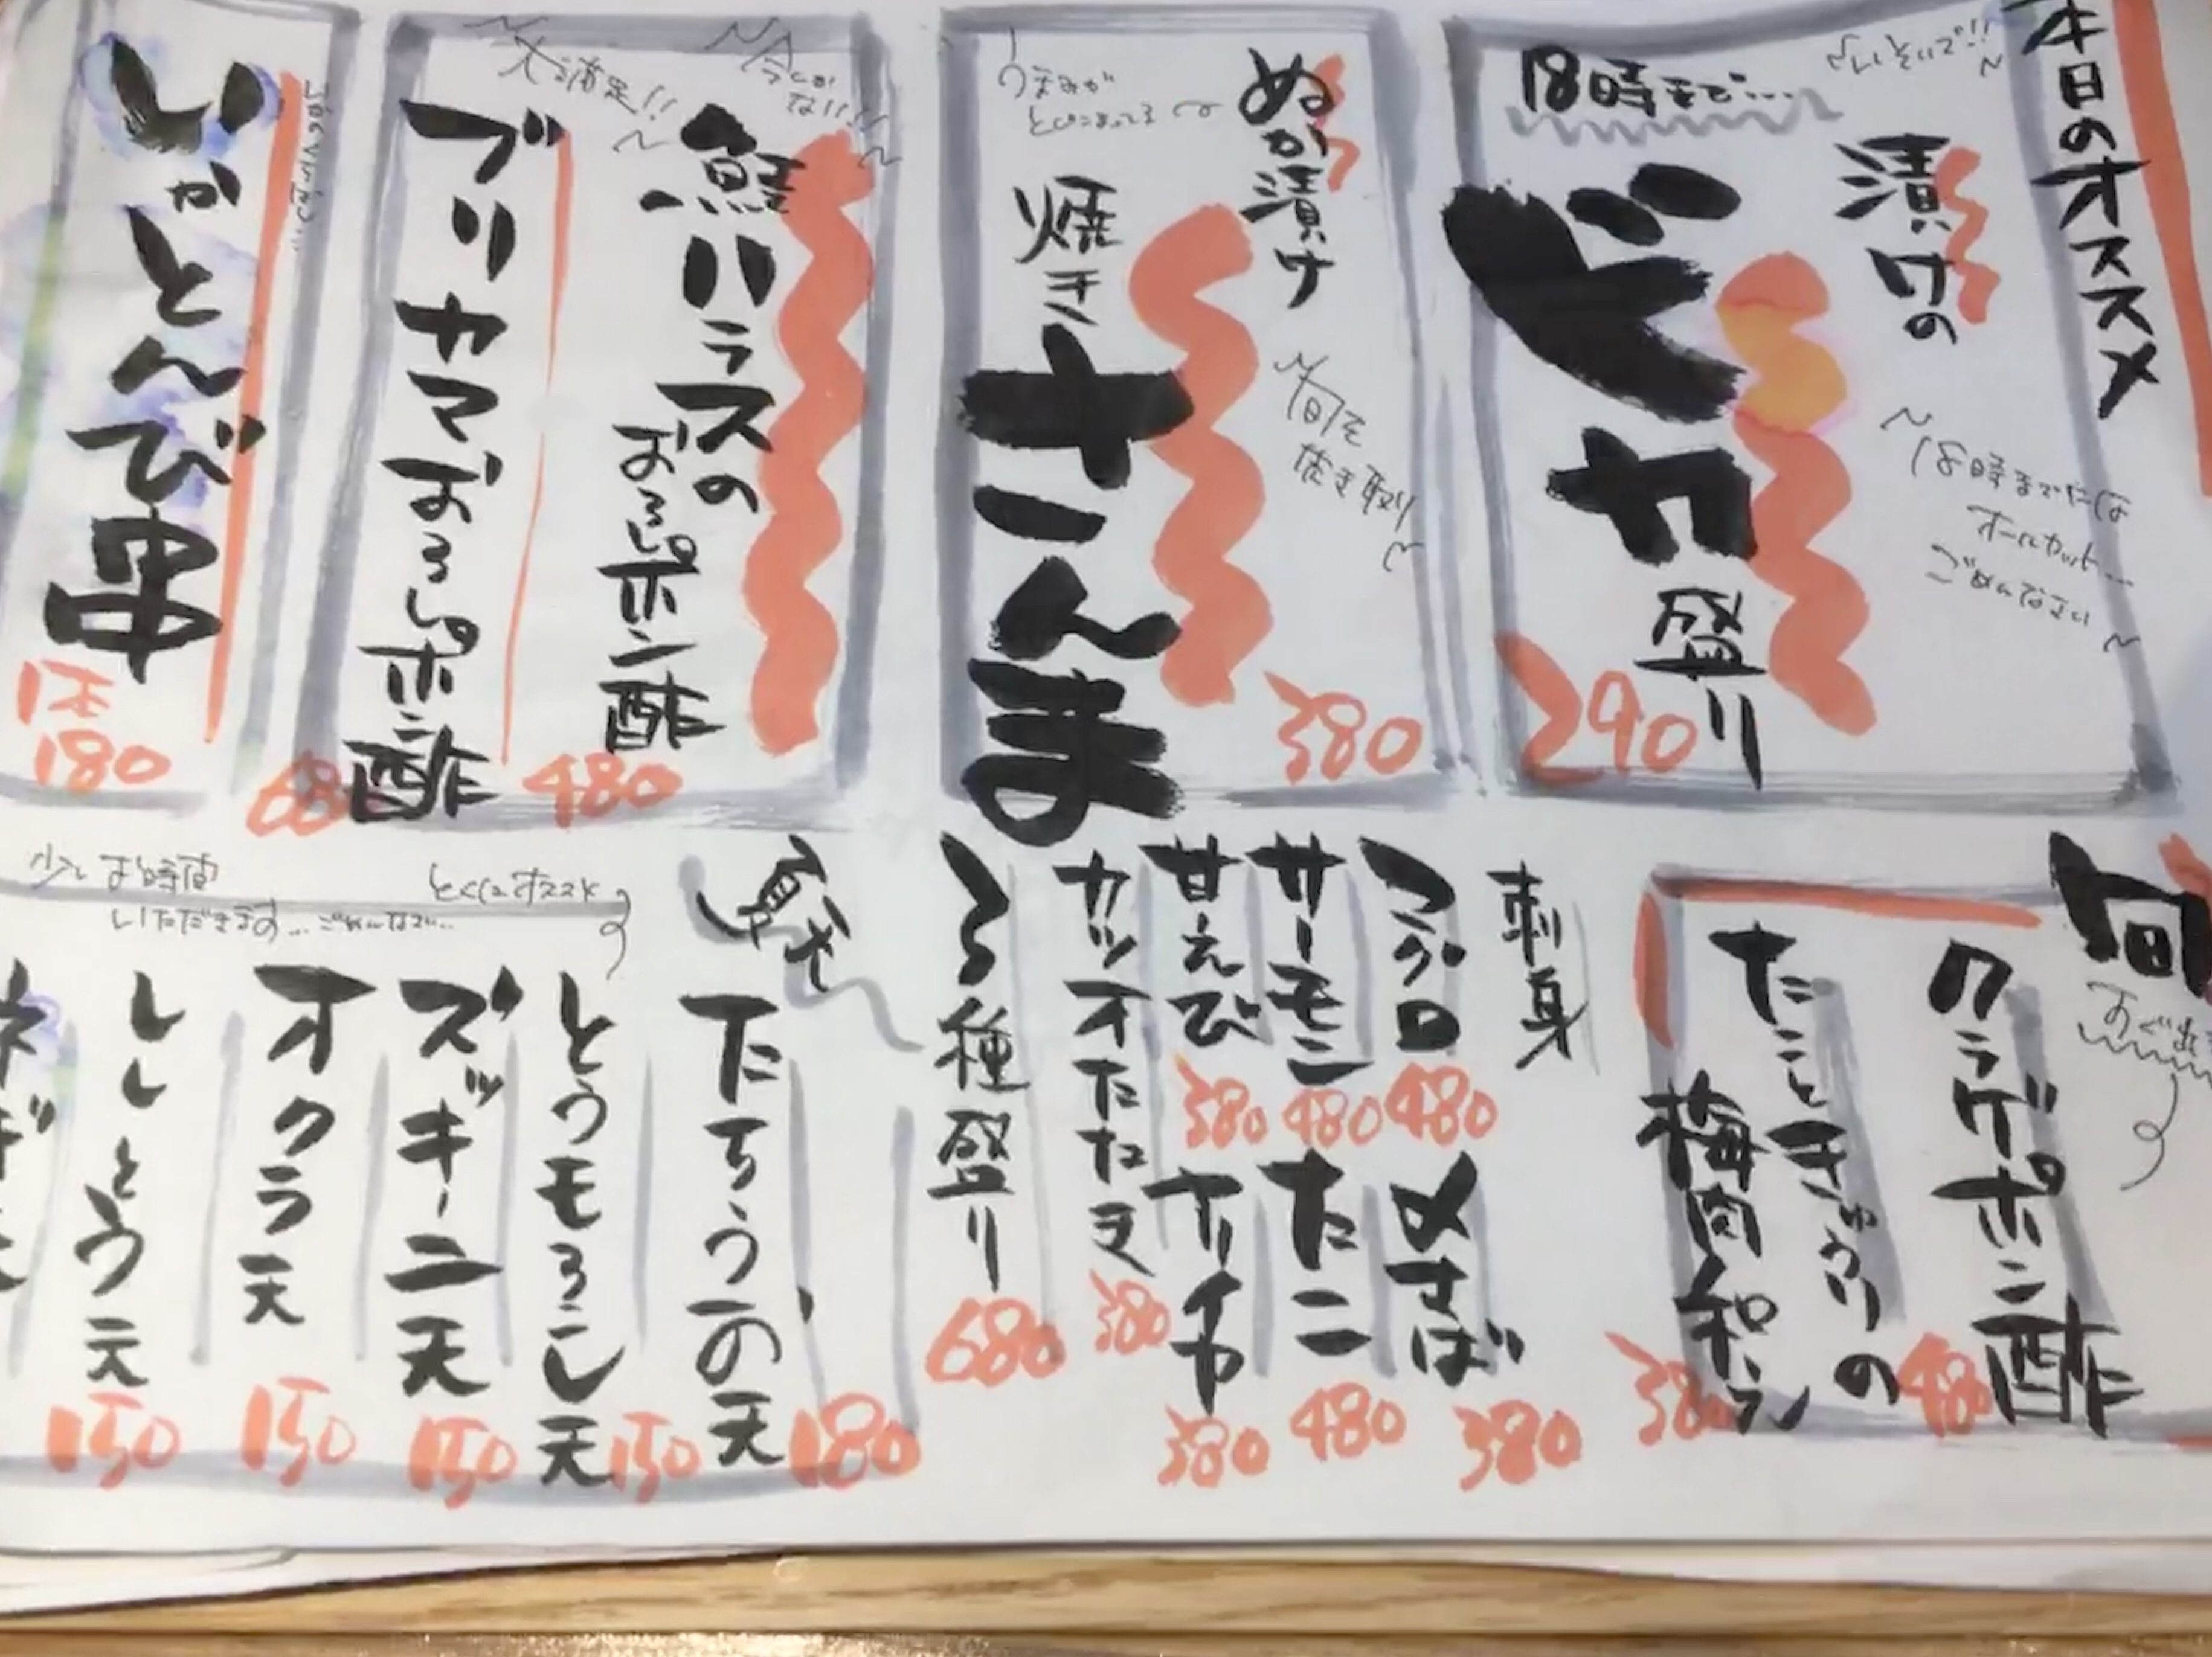 本日のオススメ
いそいで!!
18時まで…
漬けの
ドカ盛り
290
18時までには
オールカット…
ごめんなさい
ぬか漬け
焼きさんま
380
旬を
抜き取り
うまみが
とじこまってる
鮭ハラスの
おろしポン酢
480
大満足!!
ブリカマおろしポン酢
680
いかとんび串
1本
180
いかのくちばし
旬
クラゲポン酢
480
たこときゅうりの
梅肉和え
380
刺身
マグロ
480
サーモン
480
甘えび
380
〆さば
380
たこ
480
ヤリイカ
380
カツオたたき
380
3種盛り
680
たちうおの天
180
とくにオススメ
とうもろこし天
150
ズッキーニ天
150
オクラ天
150
ししとう天
150
少しお時間
いただきます…ごめんなさい…